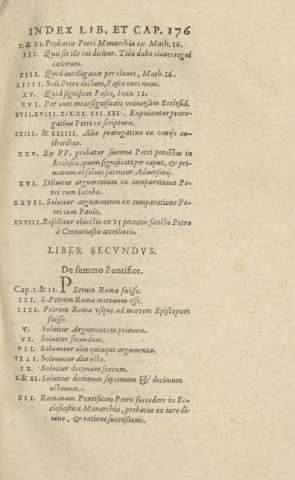 INDEX LIB. ET CAP. 176
X. & XI. Probatur Petri Monarchia ex Math. 16.
XII. Quis sit ille cui dicitur. Tibi dabo claues regni
cælorum.
XIII. Quid intelligatur per claues, Math. 16.
XIIII. Soli Petro dictum, Pasce oues meas.
XV. Quid significet Pasce, Ioan. 21.
XVI. Per oues meas significati vniuersam Ecclesiã.
XVII. XVIII. XIX. XX. XXI. XXII. Explicantur præro-
gatiuæ Petri ex scriptura.
XXIII. & XXIIII. Aliæ prærogatiuæ ex varijs au-
thoribus.
XXV. Ex PP. probatur summa Petri potestas in
Ecclesia, quam significari per caput, & pri-
matum absolutè fatentur Aduersarij.
XVI. Diluitur argumentum ex comparatione Pe-
tri cum Iacobo.
XXVII. Soluitur argumentum ex comparatione Pe-
tri cum Paulo.
XXVIII. Refellitur obiectio ex 15 peccatis sancto Petro
à Centuriastis attributis.
LIBER SECVNDVS.
De summo Pontifice.
Cap. I. & II. PEtrum Romæ fuisse.
III. S. Petrum Romæ mortuum esse.
IIII. Petrum Romæ vsque ad mortem Episcopum
fuisse.
V. Soluitur Argumentum primum.
VI. Soluitur secundum.
VII. Soluuntur alia quinque argumenta.
VIII. Soluuntur alia octo.
IX. Soluitur decimum sextum.
X. & XI. Soluitur decimum septimum & decimum
octauum.
XII. Romanum Pontificem Petro succedere in Ec-
clesiastica Monarchia, probatur ex iure di-
uino, & ratione successionis.